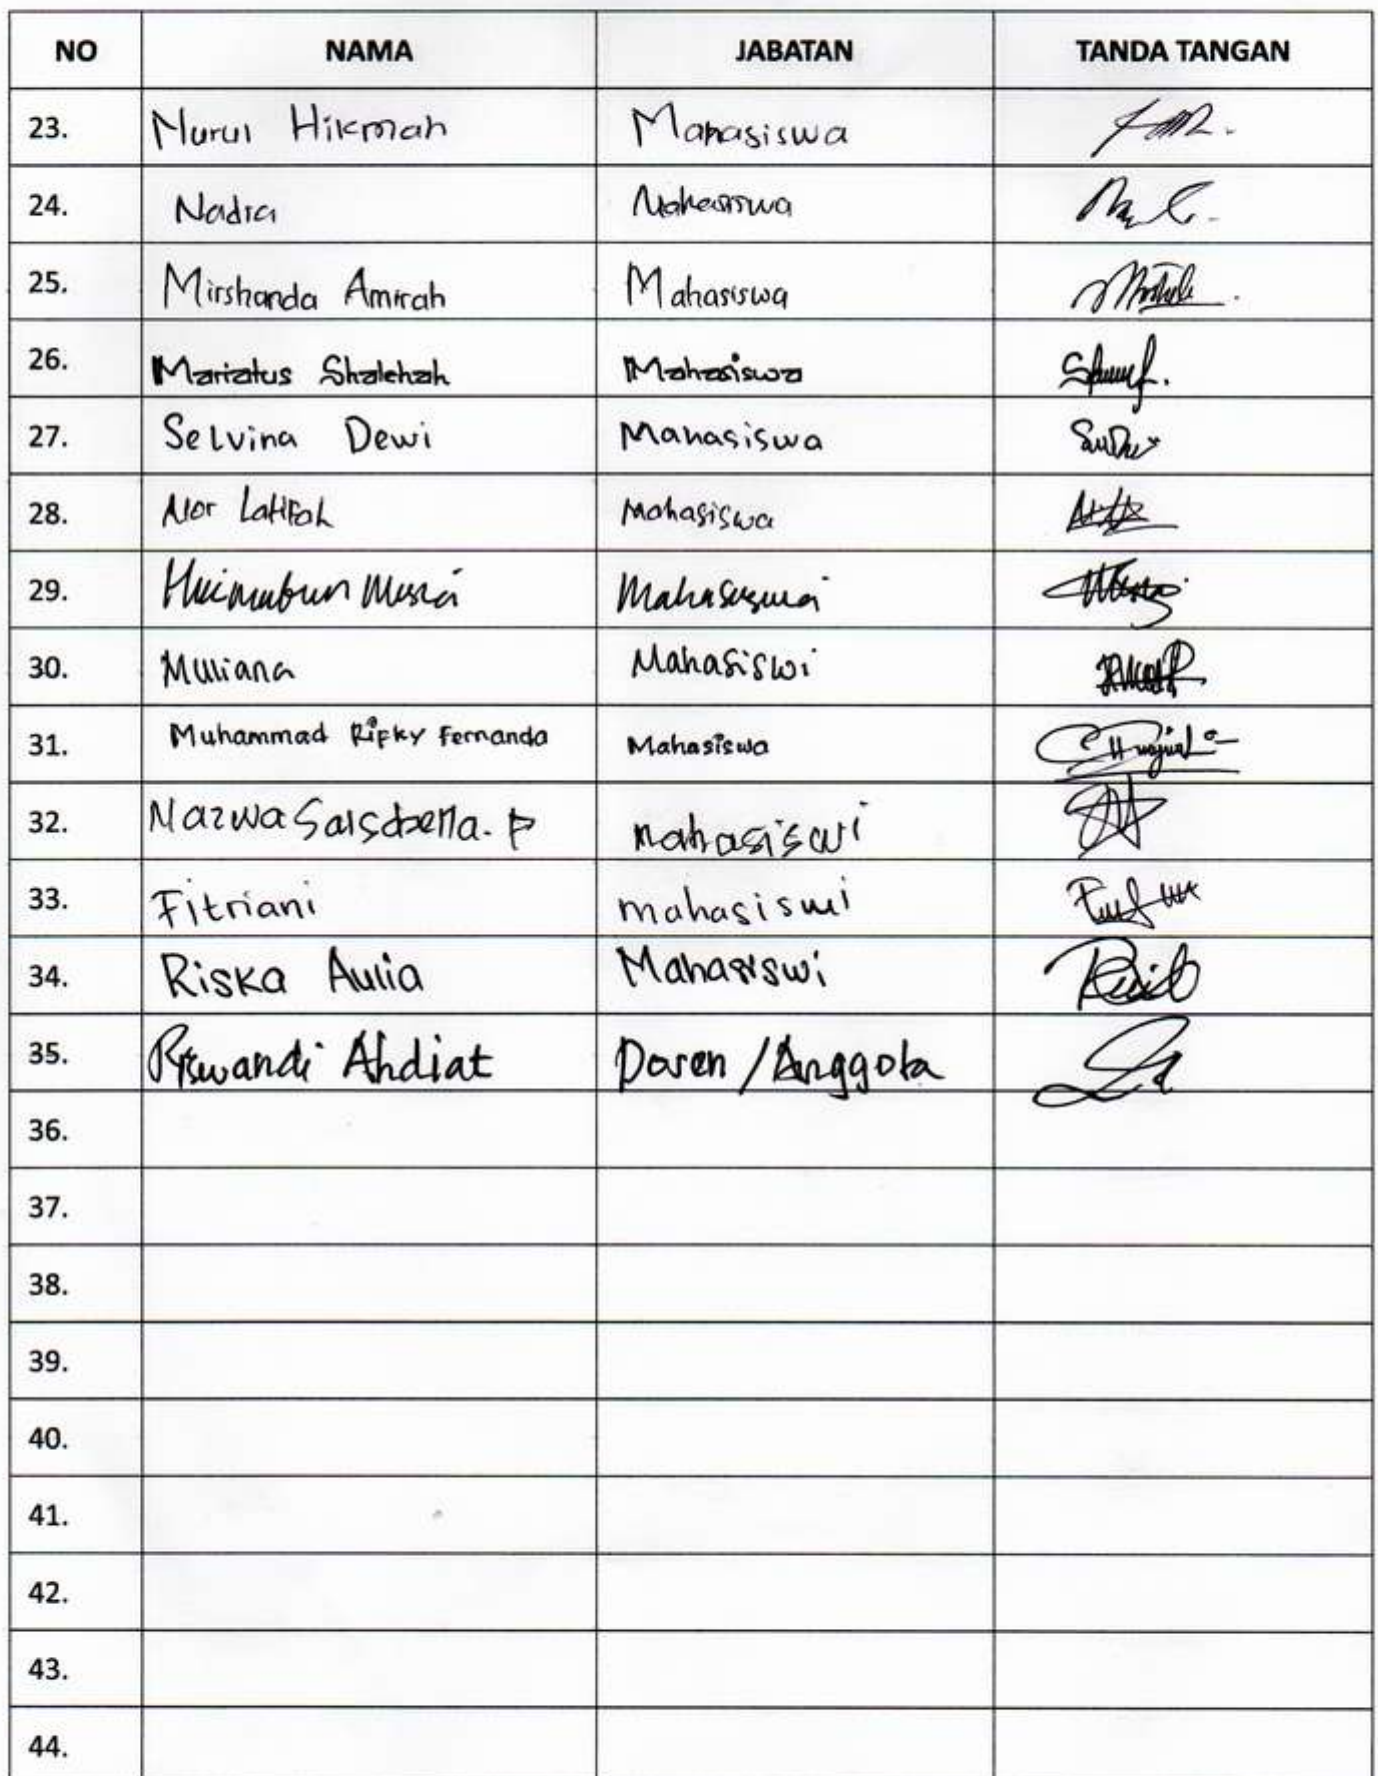 NO NAMA JABATAN TANDA TANGAN
23. Nurul Hikmah Mahasiswa
24. Nadia Mahasiswa
25. Mirshanda Amirah Mahasiswa
26. Mariatus Shalehah Mahasiswa
27. Selvina Dewi Mahasiswa
28. Nor Latifah Mahasiswa
29. Mahasiswa
30. Muliana Mahasiswi
31. Muhammad Rifky Fernanda Mahasiswa
32. Nazwa Salsabella. P mahasiswi
33. Fitriani mahasiswi
34. Riska Aulia Mahasiswi
35. Riswandi Ahdiat Dosen / Anggota
36.
37.
38.
39.
40.
41.
42.
43.
44.